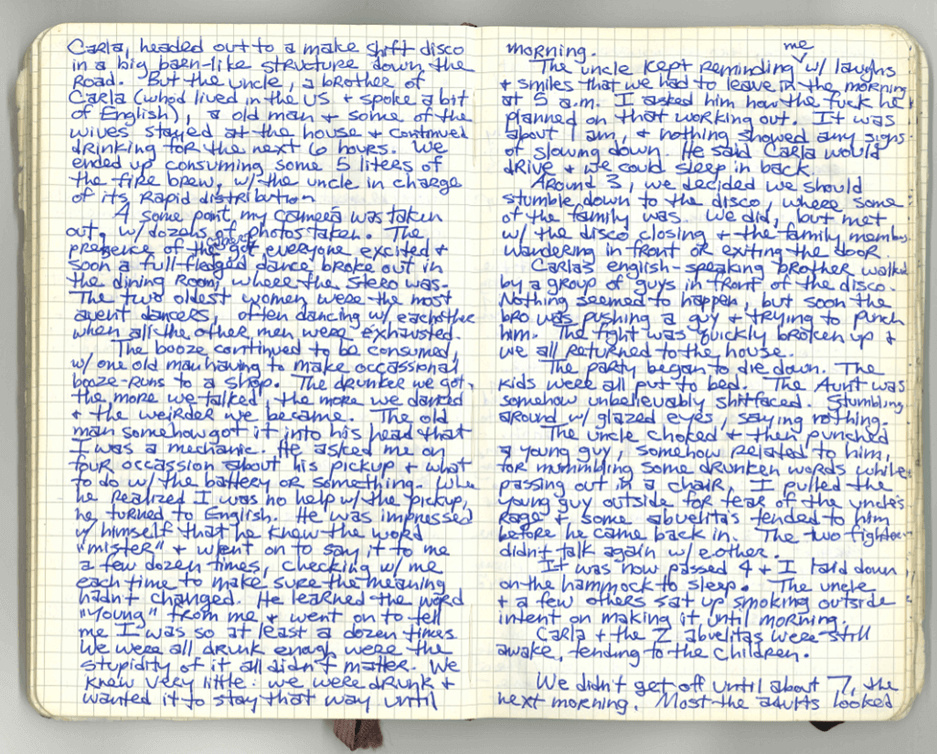 Carla, headed out to a make shift disco
in a big barn-like structure down the
road. But the uncle, a brother of
Carla (who'd lived in the US + spoke a bit
of English), a old man + some of the
wives stayed at the house + continued
drinking for the next 6 hours. We
ended up consuming some 5 liters of
the fire brew, w/ the uncle in charge
of its rapid distribution
A some point, my camera was taken
out, w/ dozens of photos taken. The
presence of the got everyone excited +
soon a full-fledged dance broke out in
the dining room, where the stereo was.
The two oldest women were the most
avent dancers, often dancing w/ eachother
when all the other men were exhausted.
The booze continued to be consumed,
w/ one old man having to make occassional
booze-runs to a shop. The drunker we got,
the more we talked, the more we danced
+ the weirder we became. The old
man somehow got it into his head that
I was a mechanic. He asked me on
four occassion about his pickup + what
to do w/ the battery or something. Whe
he realized I was no help w/ the pickup,
he turned to English. He was impressed
w/ himself that he knew the word
"mister" + went on to say it to me
a few dozen times, checking w/ me
each time to make sure the meaning
hadn't changed. He learned the word
"young" from me + went on to tell
me I was so at least a dozen times
We were all drunk enough were the
stupidity of it all didn't matter. We
knew very little: we were drunk +
wanted it to stay that way until
morning.
me
The uncle kept reminding w/ laughs
+ smiles that we had to leave in the morning
at 5 a.m. I asked him how the fuck he
planned on that working out. It was
about 1 am, + nothing showed any signs
of slowing down. He said Carla would
drive + we could sleep in back.
Around 3, we decided we should
stumble down to the disco, where some
of the family was. We did, but met
w/ the disco closing + the family members
wandering in front or exiting the door.
Carla's english-speaking brother walked
by a group of guys in front of the disco.
Nothing seemed to happen, but soon the
bro was pushing a guy + trying to punch
him. The fight was quickly broken up +
we all returned to the house.
The party began to die down. The
kids were all put to bed. The Aunt was
somehow unbelievably shitfaced. Stumbling
around w/ glazed eyes, saying nothing.
The uncle choked + then punched
a young guy, somehow related to him,
for mumbling some drunken words while
passing out in a chair. I pulled the
young guy outside for fear of the uncle's
rage + some abuelitas tended to him
before he came back in. The two fighters
didn't talk again w/ eother.
It was now passed 4 + I laid down
on the hammock to sleep. The uncle
+ a few others sat up smoking outside
intent on making it until morning.
Carla + the 2 abuelitas were still
awake, tending to the children.
We didn't get off until about 7, the
next morning. Most the adults looked